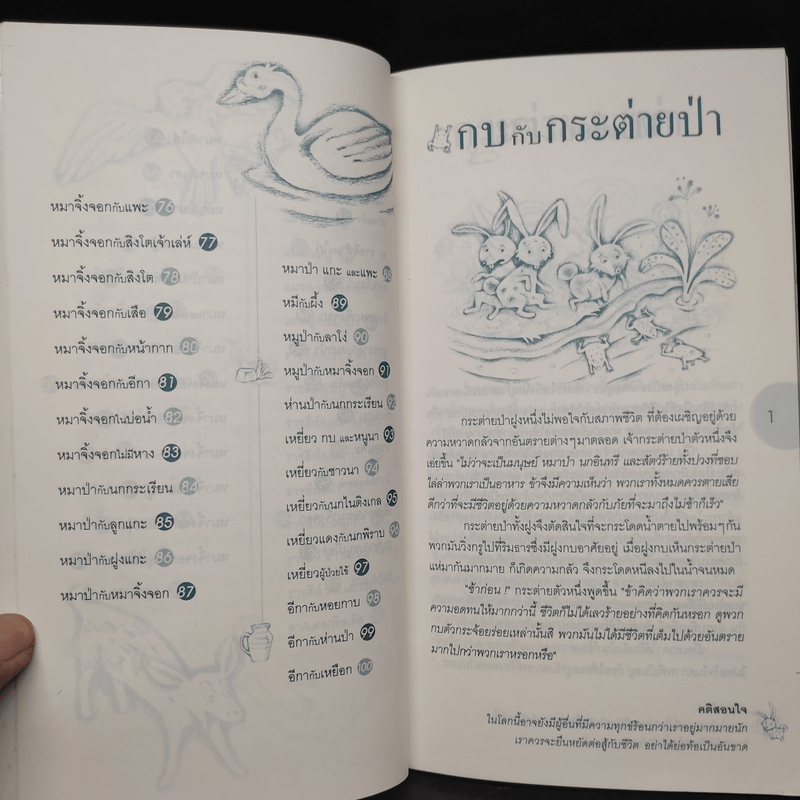 หมาจิ้งจอกกับแพะ 76
หมาจิ้งจอกกับสิงโตเจ้าเล่ห์ 77
หมาจิ้งจอกกับสิงโต 78
หมาจิ้งจอกกับเสือ 79
หมาจิ้งจอกกับหน้ากาก 80
หมาจิ้งจอกกับอีกา 81
หมาจิ้งจอกในบ่อน้ำ 82
หมาจิ้งจอกไม่มีหาง 83
หมาป่ากับนกกระเรียน 84
หมาป่ากับลูกแกะ 85
หมาป่ากับฝูงแกะ 86
หมาป่ากับหมาจิ้งจอก 87
หมาป่า แกะ และแพะ 88
หมีกับผึ้ง 89
หมูป่ากับลาโง่ 90
หมูป่ากับหมาจิ้งจอก 91
ห่านป่ากับนกกระเรียน 92
เหยี่ยว กบ และหนูนา 93
เหยี่ยวกับชาวนา 94
เหยี่ยวกับนกไนติงเกล 95
เหยี่ยวแดงกับนกพิราบ 96
เหยี่ยวผู้ป่วยไข้ 97
อีกากับหอยกาบ 98
อีกากับห่านป่า 99
อีกากับเหยือก 100
กบกับกระต่ายป่า
กระต่ายป่าฝูงหนึ่งไม่พอใจกับสภาพชีวิต ที่ต้องเผชิญอยู่ด้วย
ความหวาดกลัวจากอันตรายต่างๆมาตลอด เจ้ากระต่ายป่าตัวหนึ่งจึง
เอ่ยขึ้น "ไม่ว่าจะเป็นมนุษย์ หมาป่า นกอินทรี และสัตว์ร้ายทั้งปวงที่ชอบ
ไล่ล่าพวกเราเป็นอาหาร ข้าจึงมีความเห็นว่า พวกเราทั้งหมดควรตายเสีย
ดีกว่าที่จะมีชีวิตอยู่ด้วยความหวาดกลัวกับภัยที่จะมาถึงไม่ช้าก็เร็ว"
กระต่ายป่าทั้งฝูงจึงตัดสินใจที่จะกระโดดน้ำตายไปพร้อมๆกัน
พวกมันวิ่งกรูไปที่ริมธารซึ่งมีฝูงกบอาศัยอยู่ เมื่อฝูงกบเห็นกระต่ายป่า
แห่มากันมากมาย ก็เกิดความกลัว จึงกระโดดหนีลงไปในน้ำจนหมด
"ช้าก่อน !" กระต่ายตัวหนึ่งพูดขึ้น "ข้าคิดว่าพวกเราควรจะมี
ความอดทนให้มากกว่านี้ ชีวิตก็ไม่ได้เลวร้ายอย่างที่คิดกันหรอก ดูพวก
กบตัวกระจ้อยร่อยเหล่านั้นสิ พวกมันไม่ได้มีชีวิตที่เต็มไปด้วยอันตราย
มากไปกว่าพวกเราหรอกหรือ"
1
คติสอนใจ
ในโลกนี้อาจยังมีผู้อื่นที่มีความทุกข์ร้อนกว่าเราอยู่มากมายนัก
เราควรจะยืนหยัดต่อสู้กับชีวิต อย่าได้ย่อท้อเป็นอันขาด